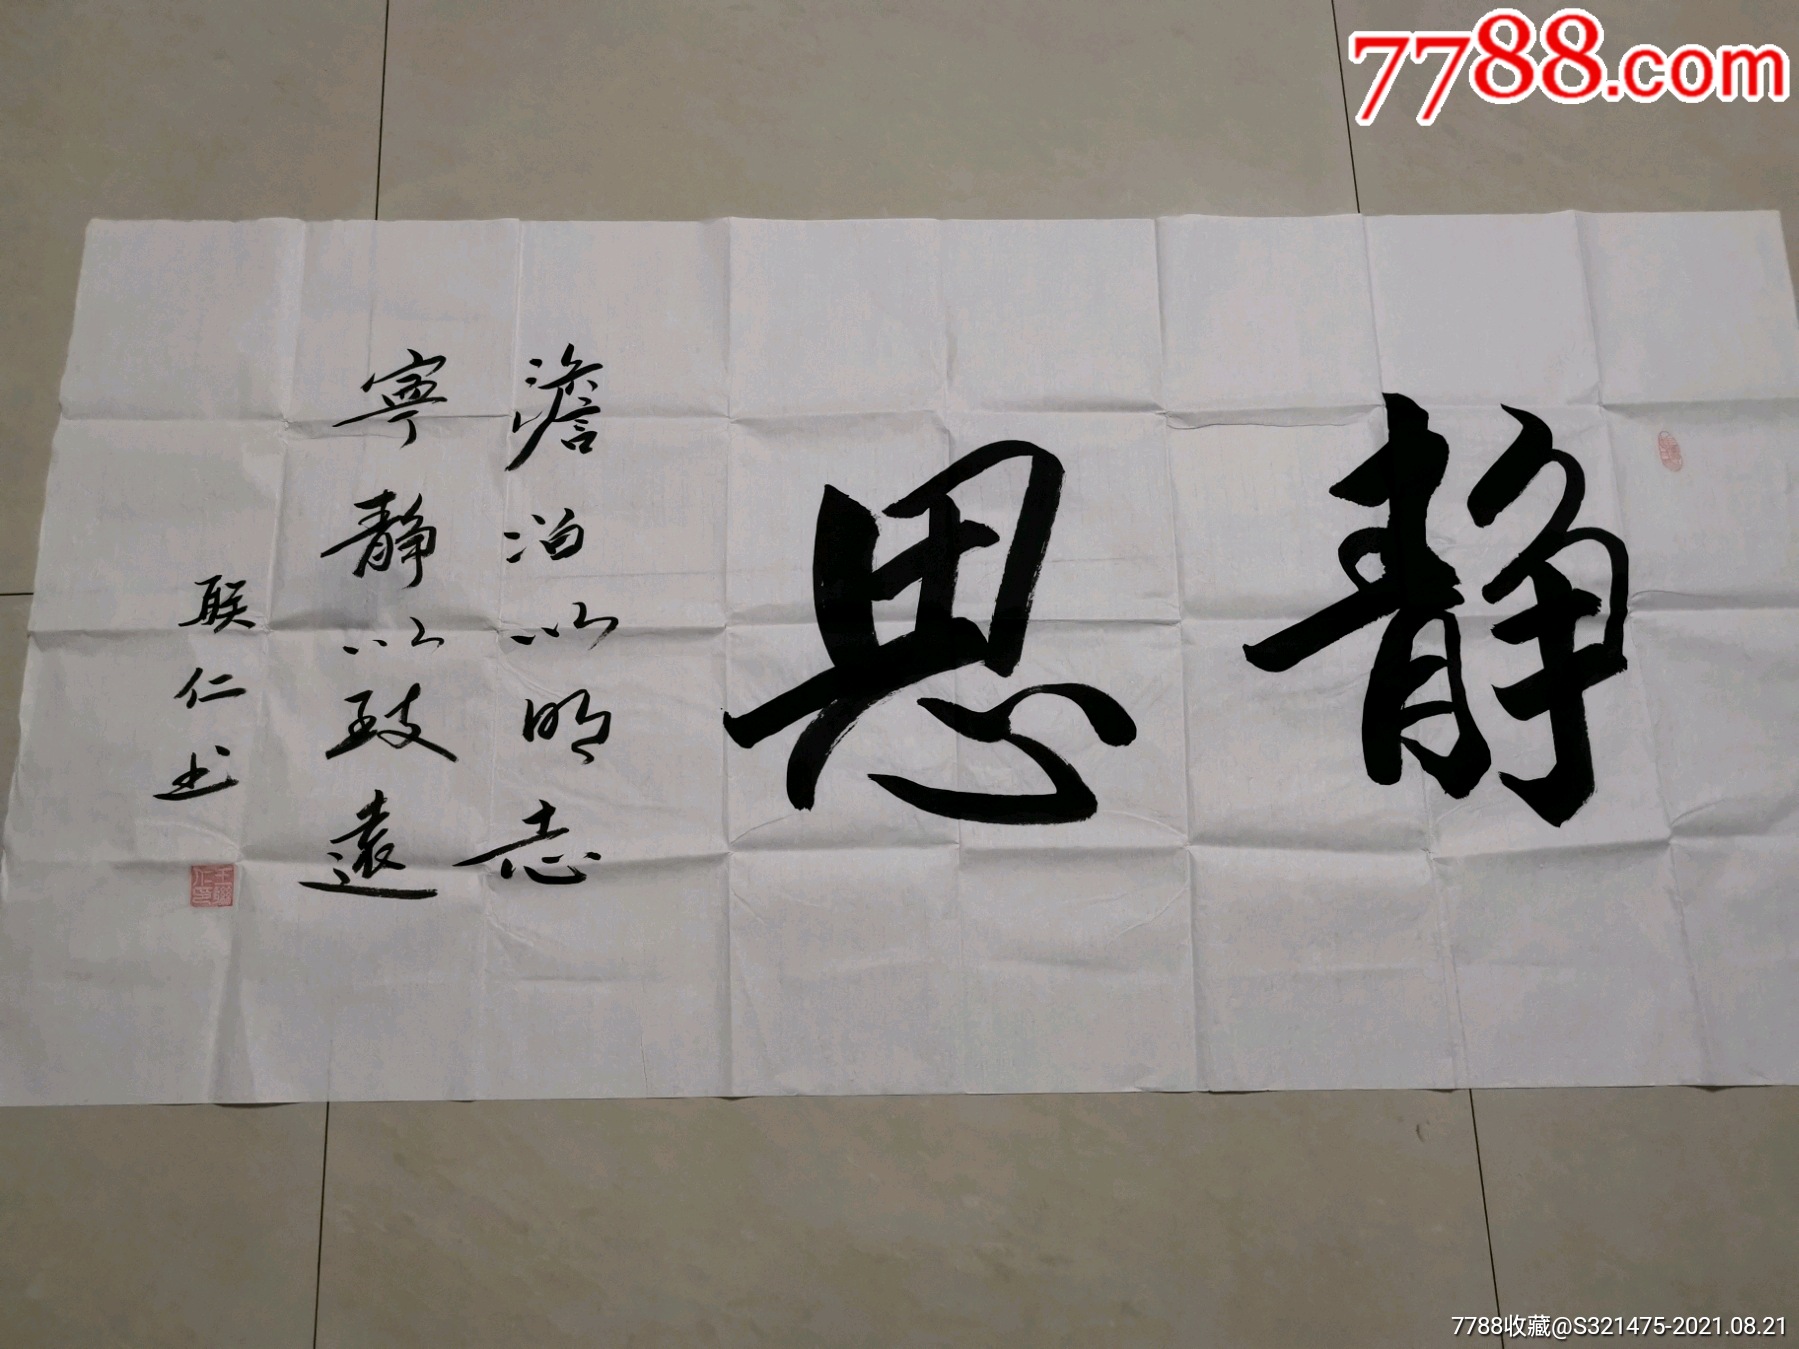 7788.com
静思
澹泊以明志
寧靜以致遠
联仁书
7788收藏@S321475-2021.08.21